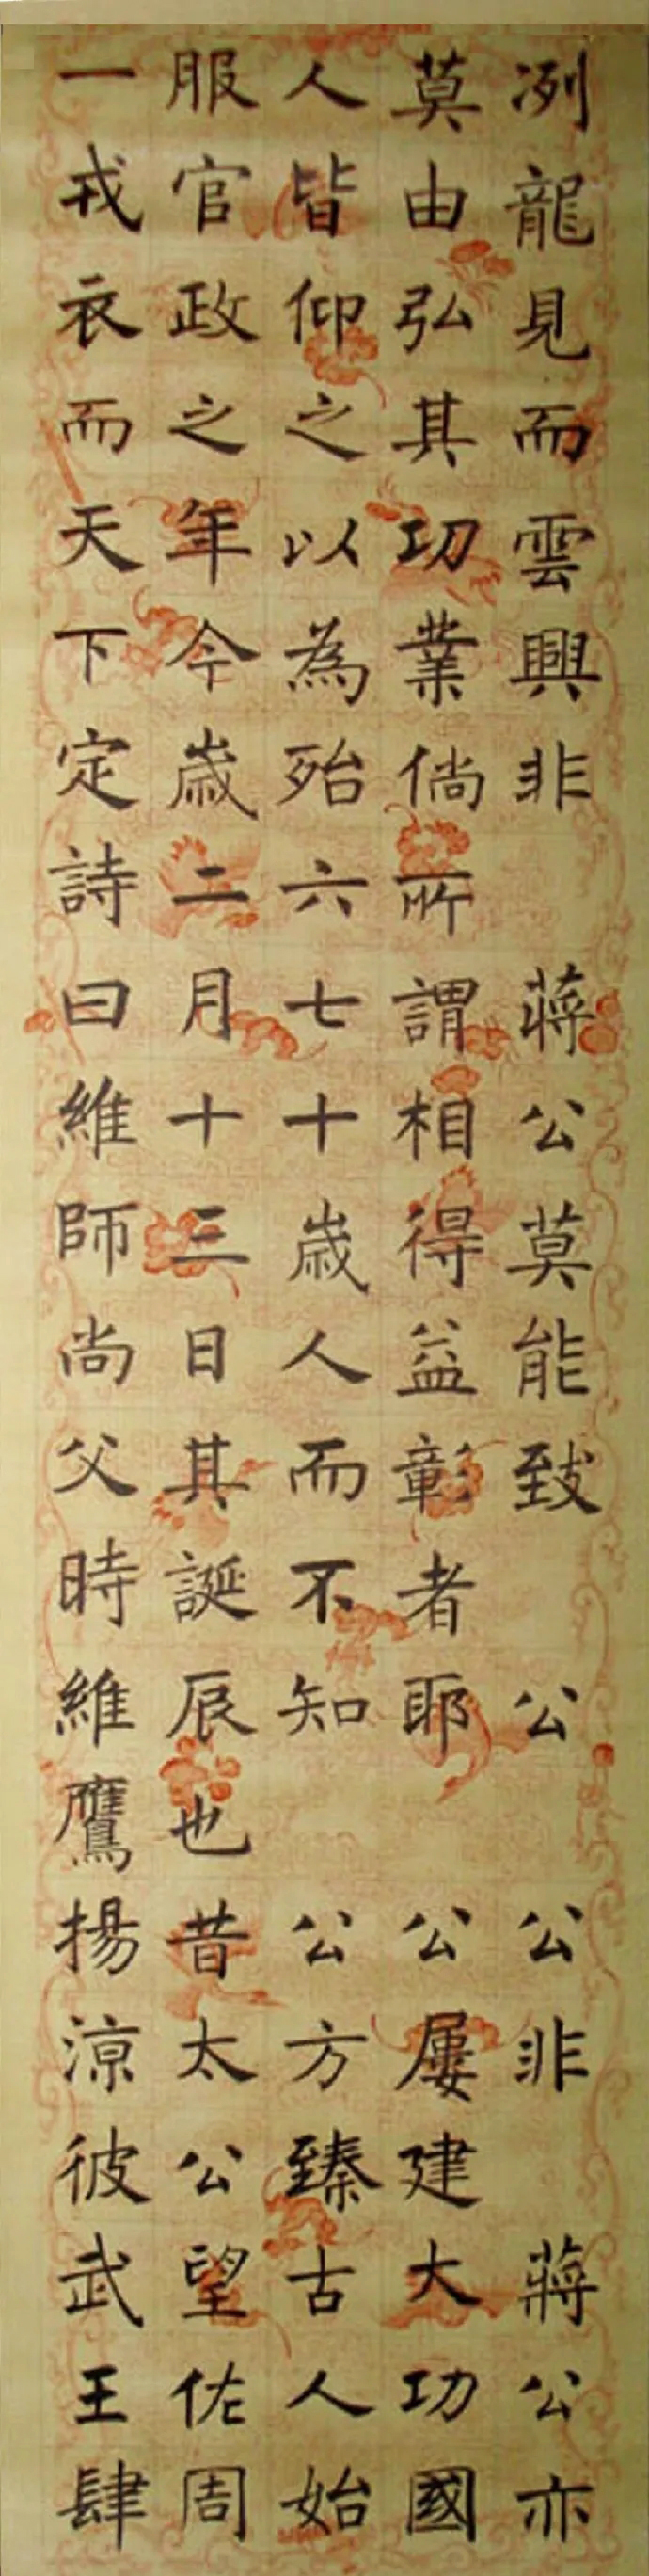 冽龍見而雲興非　蔣公莫能致　公　公非　蔣公亦
莫由弘其功業倘所謂相得益彰者耶　公屢建大功國
人皆仰之以為殆六七十歲人而不知　公方臻古人始
服官政之年今歲二月十三日其誕辰也昔太公望佐周
一戎衣而天下定詩曰維師尚父時維鷹揚涼彼武王肆